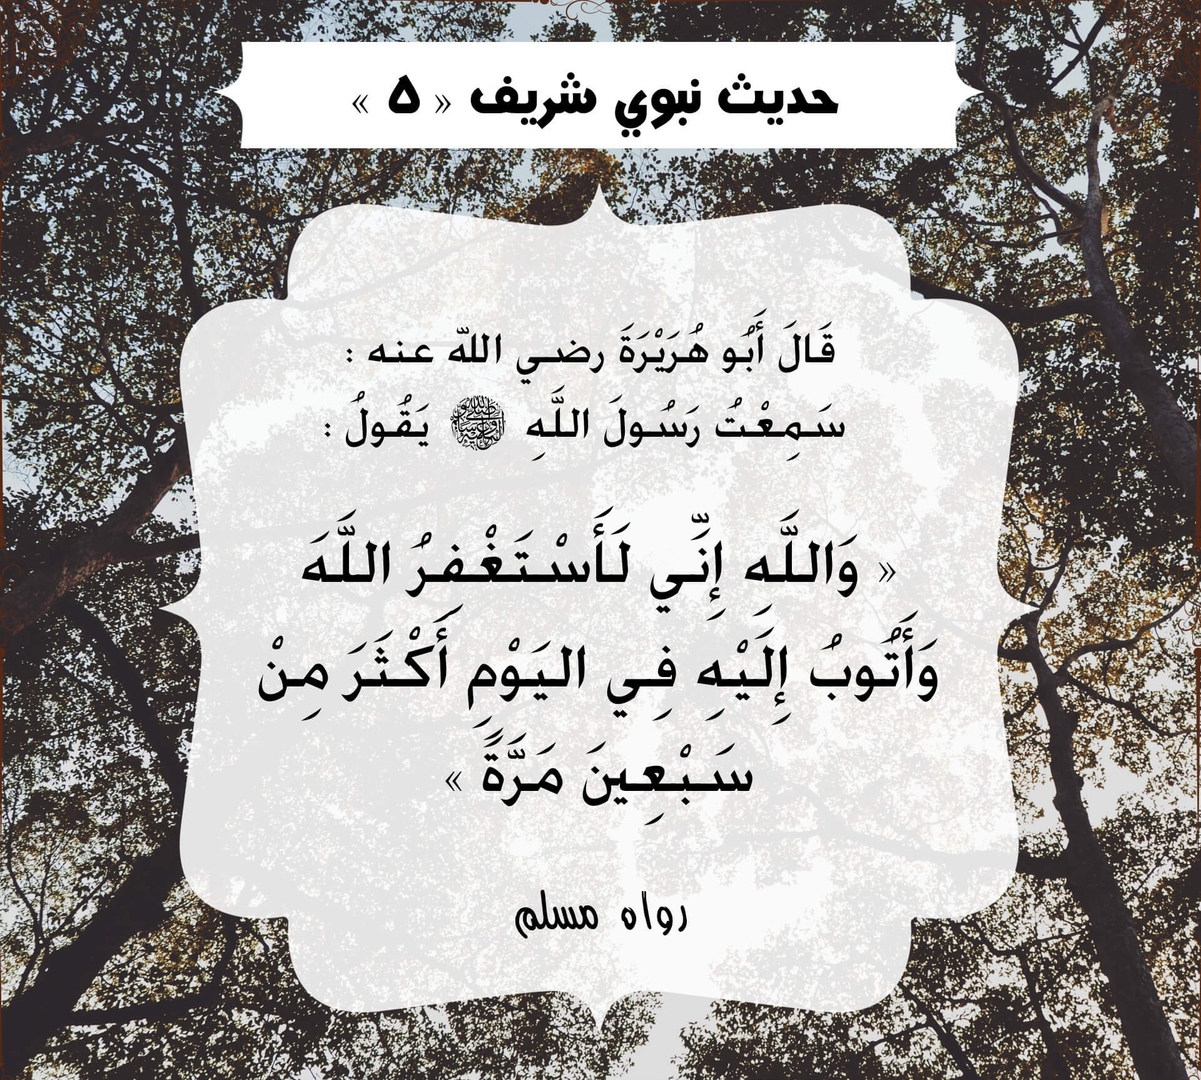 حديث نبوي شريف « ۵ »
قَالَ أَبُو هُرَيْرَةَ رضي اللّه عنه :
سَمِعْتُ رَسُولَ اللَّهِ ﷺ يَقُولُ :
« وَاللَّهِ إِنِّي لَأَسْتَغْفِرُ اللَّهَ
وَأَتُوبُ إِلَيْهِ فِي اليَوْمِ أَكْثَرَ مِنْ
سَبْعِينَ مَرَّةً »
رواه مسلم